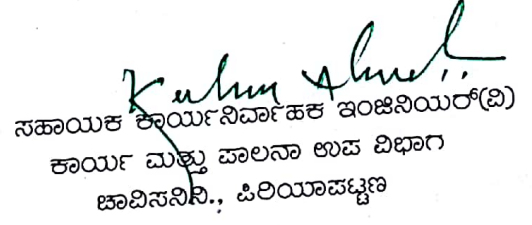 ಸಹಾಯಕ ಕಾರ್ಯನಿರ್ವಾಹಕ ಇಂಜಿನಿಯರ್(ವಿ)
ಕಾರ್ಯ ಮತ್ತು ಪಾಲನಾ ಉಪ ವಿಭಾಗ
ಚಾವಿಸನಿನಿ., ಪಿರಿಯಾಪಟ್ಟಣ